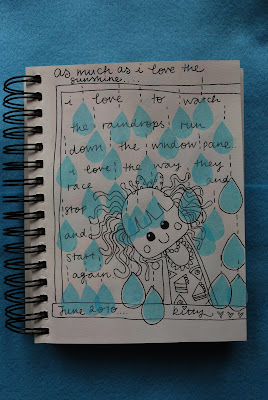 as much as i love the
sunshine...
i love to watch
the raindrops run
down the window pane...
i love the way they
race and
stop
and
start
again
June 2010... kitty